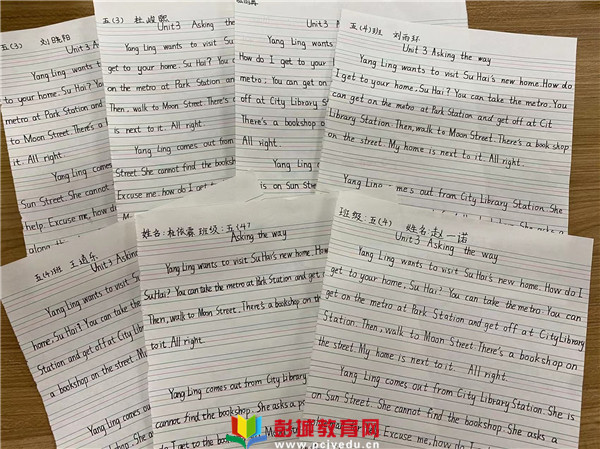 五(3) 刘晓阳
Unit 3 A
Yang Ling wants
to your home, Su
metro at Park Station and
to Moon Street. There's a
it. All right.
Yang Ling comes
Sun Street. She cannot
help. Excuse me, how
五(3)
Unit 3 Asking
Yang Ling wants to visit Su
get to your home, Su Hai? You
metro at Park Station and get
Then, walk to Moon Street. There's
is next to it. All right.
Yang Ling comes out from
Street. She cannot find the bookshop
Excuse me, how do I get to
Unit 3
Yang Ling wants
How do I get to your
metro. You can get on
off at City Library Station
There's a bookshop on
All right.
Yang Ling
is on Sun Street
五(4)班 刘雨环
Unit 3 Asking the way
Yang Ling wants to visit Su Hai's new home. How do
I get to your home, Su Hai? You can take the metro. You
can get on the metro at Park Station and get off at Cit
Library Station. Then, walk to Moon Street. There's a book shop
on the street. My home is next to it. All right.
Yang Ling comes out from City Library Station. She
五(4)班 王
Unit 3 Asking
Yang Ling wants to visit Su
home, Su Hai? You can take
Station and get off at City
a bookshop on the street. M
Yang Ling comes
姓名: 杜依霖 班级: 五(4)
Asking the way
Yang Ling wants to visit Su Hai's new home. How
Su Hai? You can take the metro at Park Station and get
Then, walk to Moon Street. There's a bookshop on the
to it. All right.
Yang Ling comes out from City Library
cannot find the bookshop. She asks a po
do I get to the boo
班级: 五(4) 姓名: 赵一诺
Unit 3 Asking the way
Yang Ling wants to visit Su Hai's new home. How do I
get to your home, Su Hai? You can take the metro. You can
get on the metro at Park Station and get off at City Library
Station. Then, walk to Moon Street. There's a bookshop on
the street. My home is next to it. All right.
Yang Ling comes out from City Library Station. She is
on Sun Street. She cannot find the bookshop. She asks a
Excuse me, how do I
彭城教育网
www.pcjyedu.cn